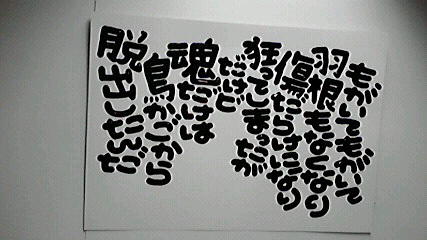 もがいてもがいて
羽根もなくなり
傷だらけになり
狂ってしまったが
だけど
魂だけは
鳥かごから
脱出したんだ